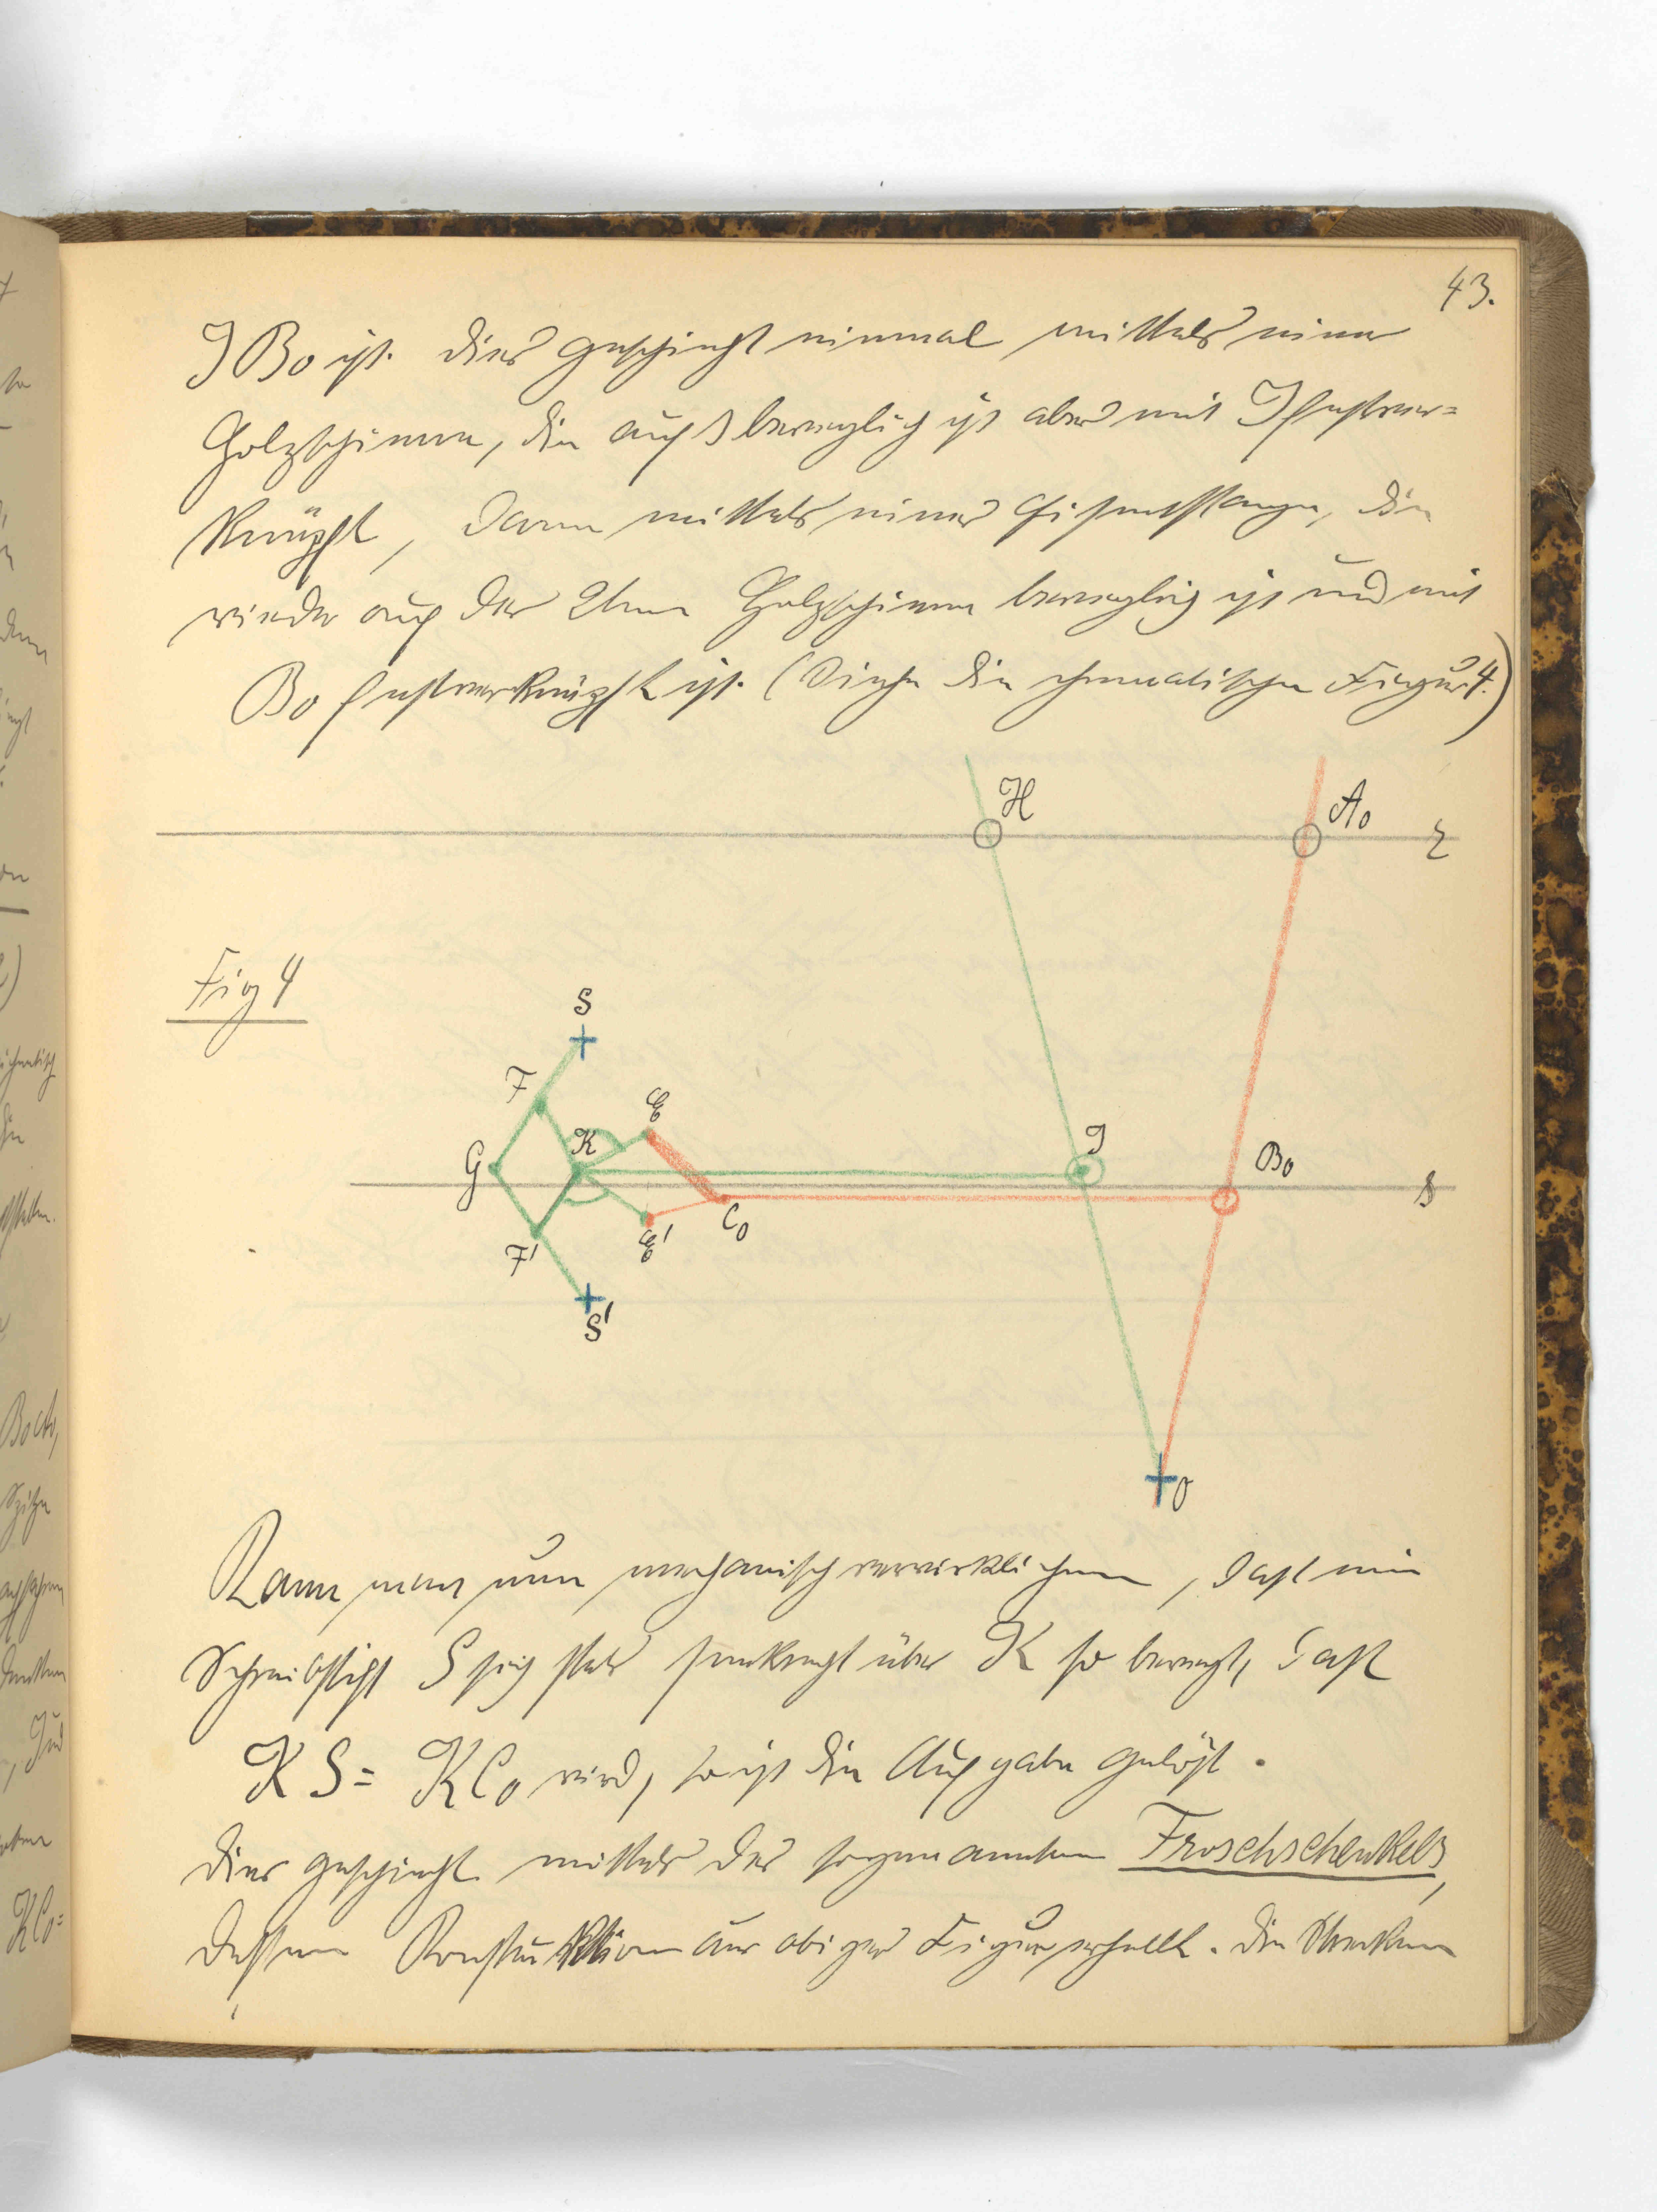 43.
J B₀ ist. Dies geschieht einmal mittels einer
Holzschiene, die auf s beweglich ist aber mit J fest ver=
knüpft, dann mittels einer Eisenstange, die
wieder auf der Holzschiene beweglich ist und mit
B₀ fest verknüpft ist. (Siehe die schematische Figur 4.)
H A₀
z
Fig 4
S
F E
K J B₀
G
s
F' E' C₀
S'
O
Kann man nun mechanisch verwirklichen, daß ein
Schreibstift S sich stets senkrecht über K so bewegt, daß
KS = KC₀ wird, so ist die Aufgabe gelöst.
Dies geschieht mittels des sogenannten Froschschenkels,
dessen Konstruktion aus obiger Figur erhellt. Die Strecken